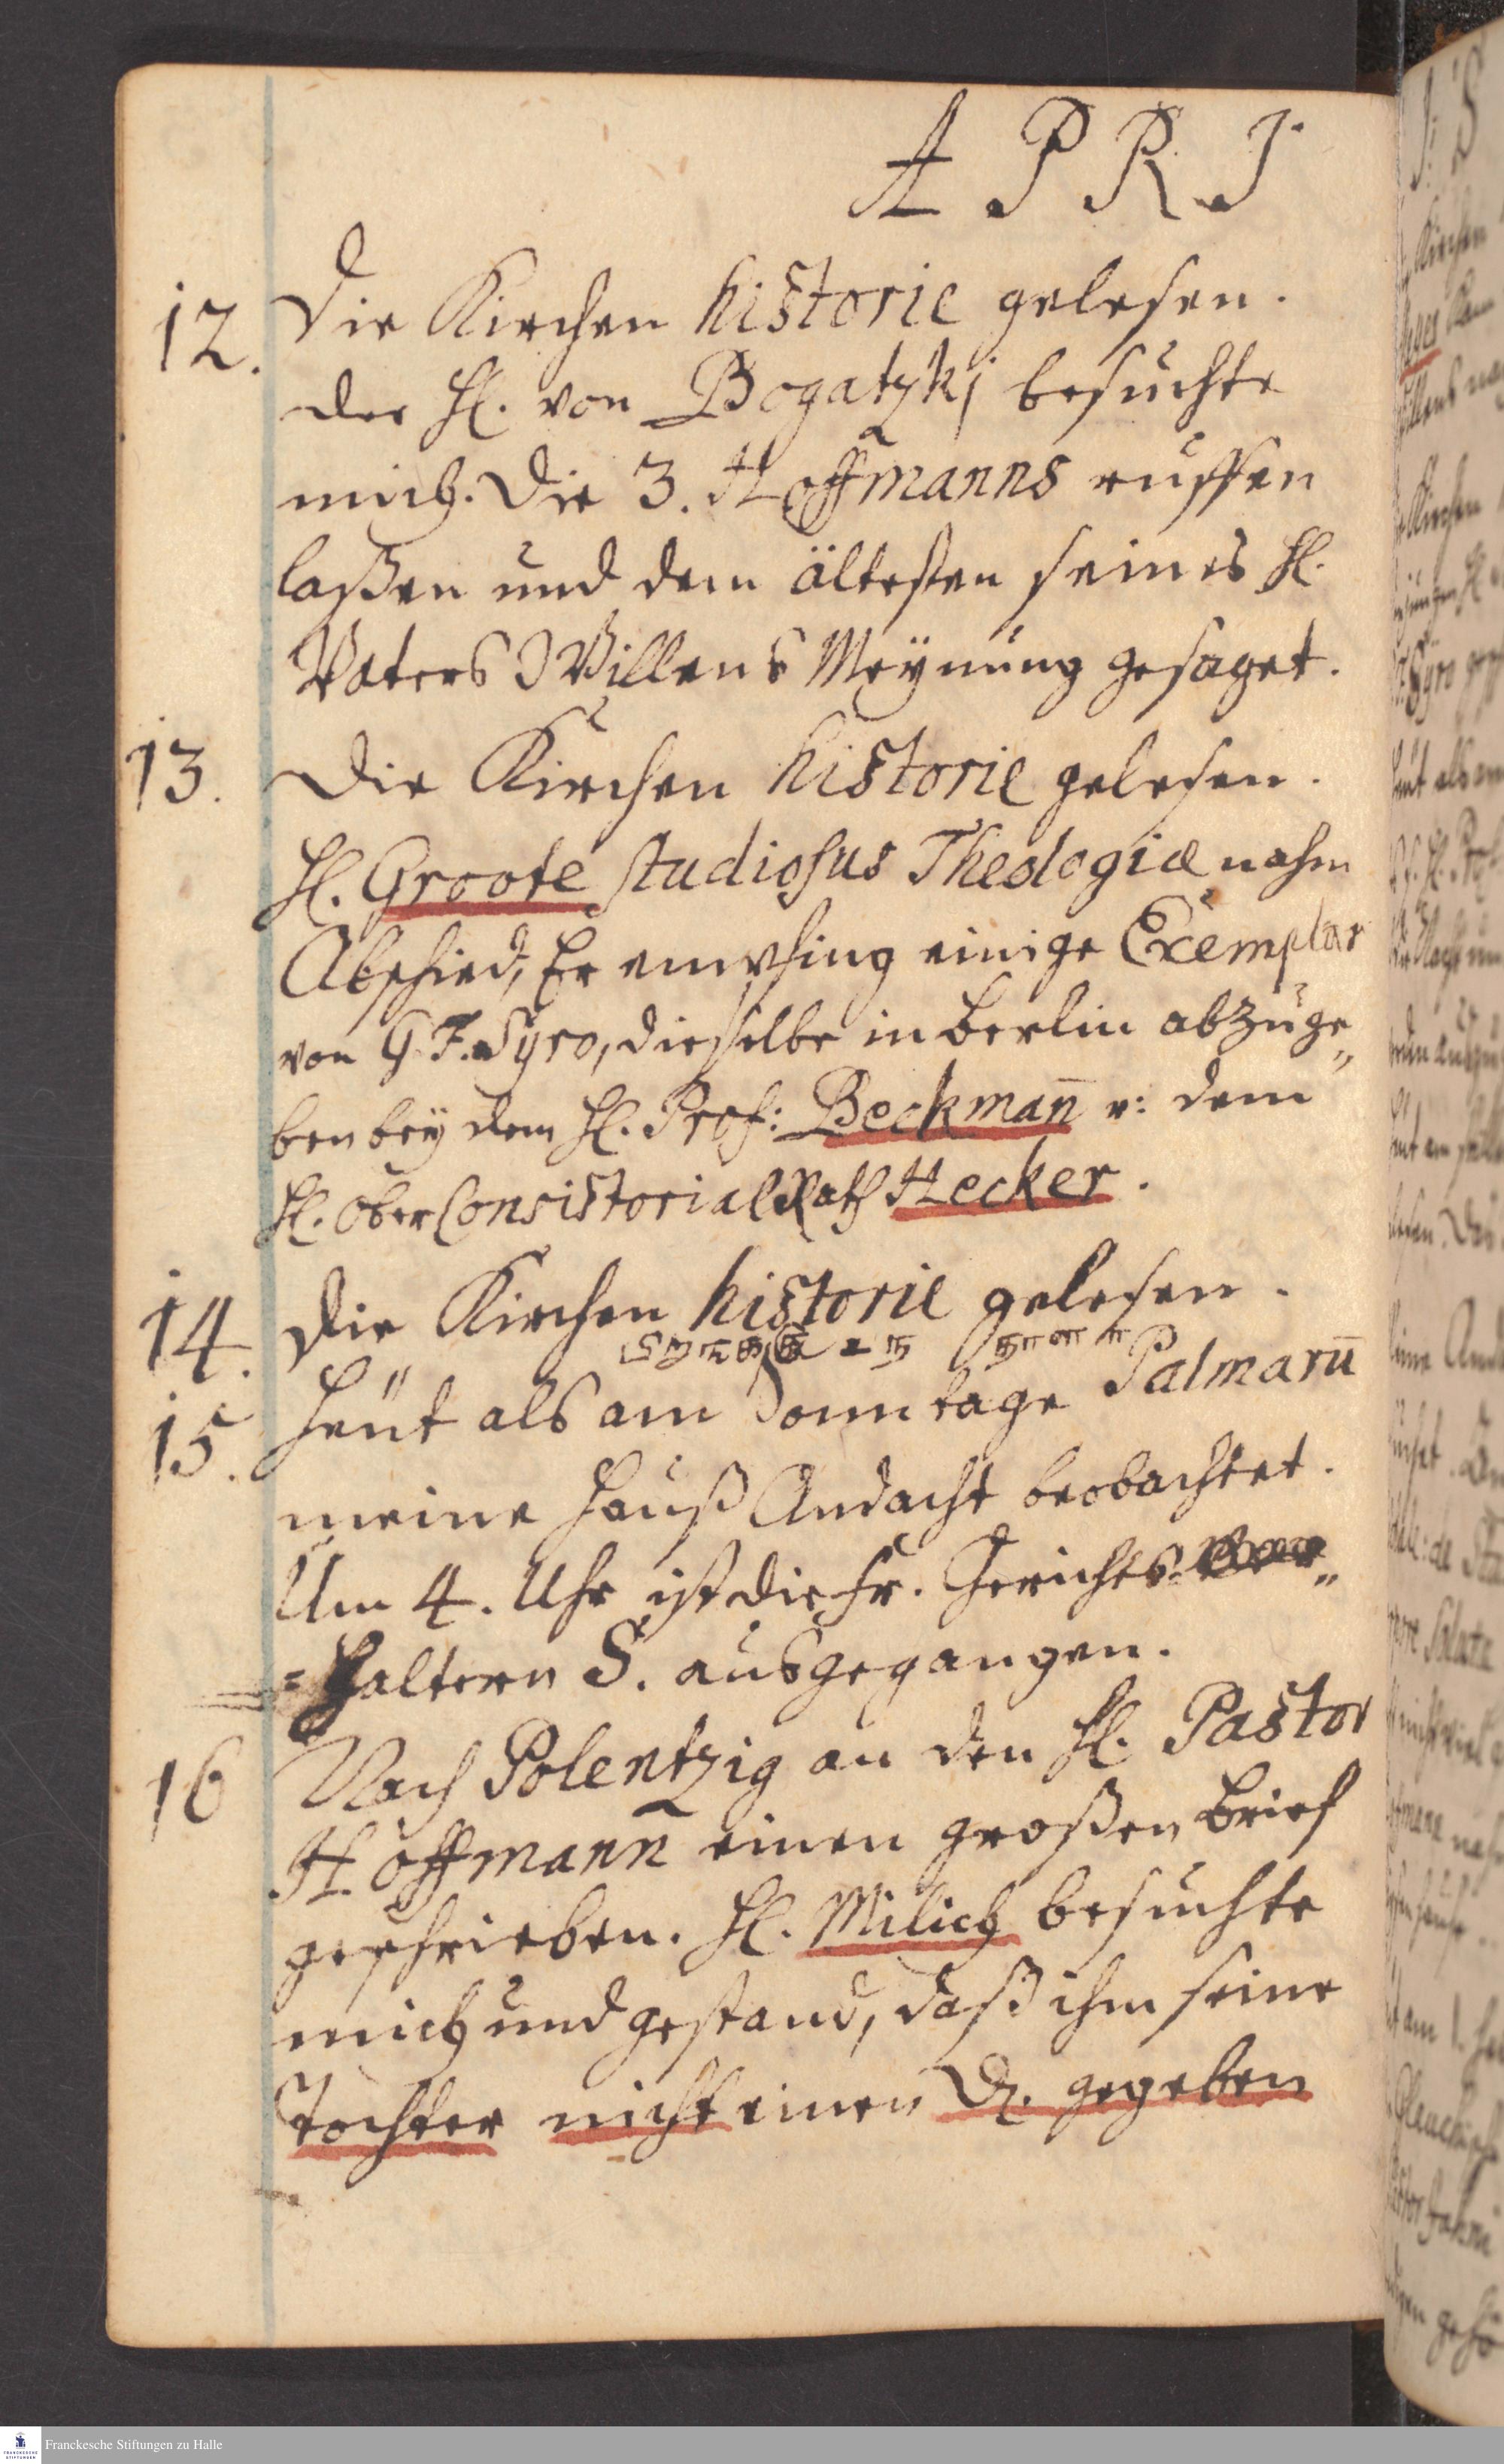 A P R I
12. Die Kirchen historie gelesen.
der H. von Bogatzkj besuchte
mich. Die 3. Hoffmanns ruffen
laßen und dem ältesten seines H.
Vaters Willens Meÿnung gesaget.
13. Die Kirchen historie gelesen.
H. Groote studiosus Theologiæ nahm
Abschied, Er empfing einige Exemplar
von G. F. Syro, dieselbe in Berlin abzuge„
ben beÿ dem H. Prof: Beckman̄ u: dem
H. Ober Consistorial Rath Hecker.
14. Die Kirchen historie gelesen.
15. Heut als am Sonntage Palmarū
meine Hauß Andacht beobachtet.
Um 4. Uhr ist die Fr. Gerichts
=haltern S. ausgegangen.
16 Nach Polentzig an den H. Pastor
Hoffmann einen großen Brief
geschrieben. H. Milich besuchte
mich und gestand, daß ihm seine
Tochter nicht einen gegeben
Franckesche Stiftungen zu Halle